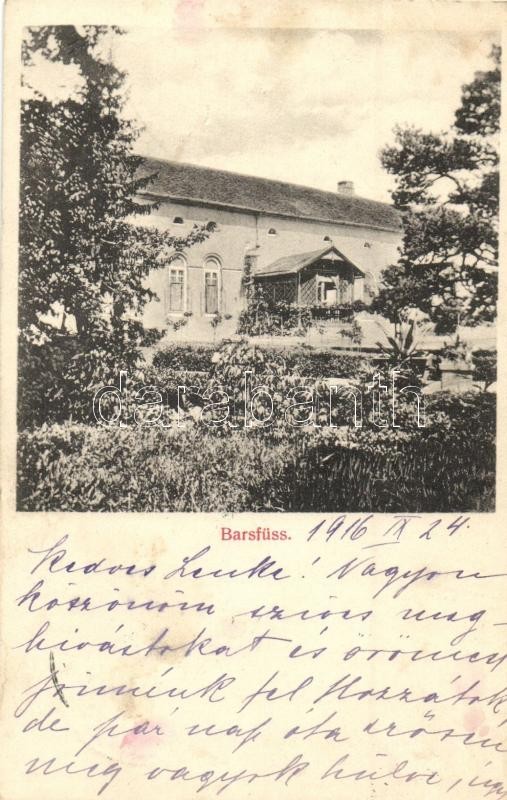 darabanth
Barsfüss. 1916 IX 24.
Kedves Lenke! Nagyon
köszönöm szives meg-
hivástokat és örömest
jönnénk fel Hozzátok
de pár nap óta erősen
meg vagyok hülve, úgy